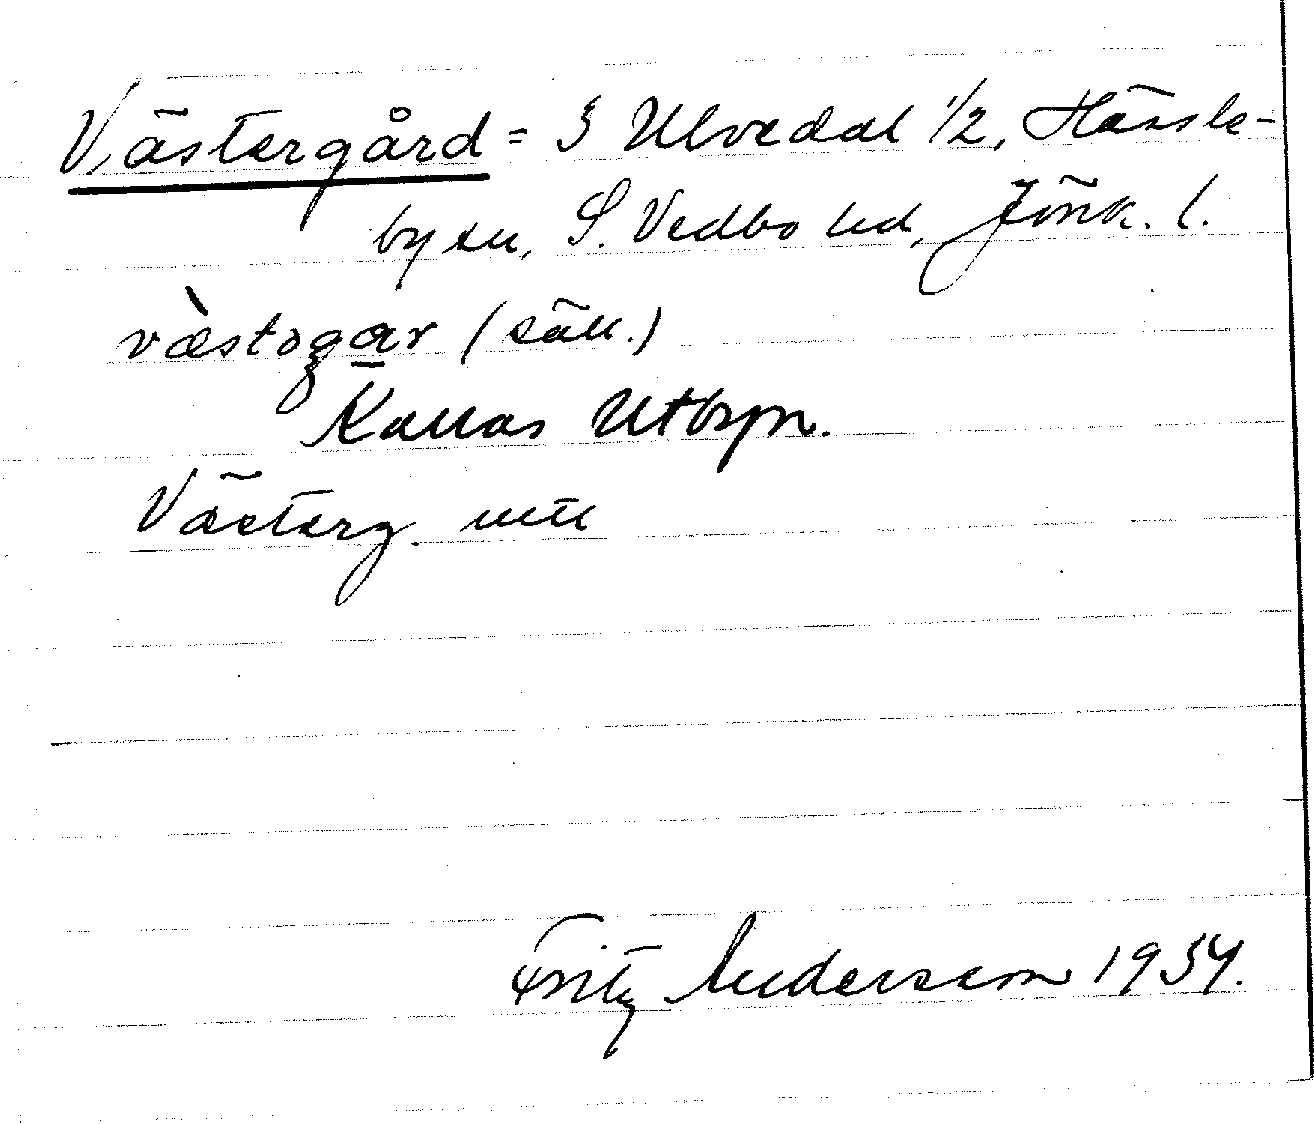 Västergård = 3 Ulvedal 1/2, Hässle-
by sn, S. Vedbo hd, Jönk. l.
væ̀stogar (säll.)
Kallas Utbyn.
Västerg. utn
Fritz Anderson 1934.